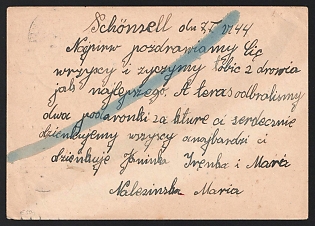 Schönsell dn 7.I. VI 44
Napirw pozdrawiamy Cię
wszyscy i życzymy tobie zdrowia
jak najlepszego. A teras odbraliśmy
dwa podaronki za kture ci serdecznie
dzienkujemy wszyscy a najbardzi ci
dzienkuje Janinka Irenka i Maria
Nalezinska Maria